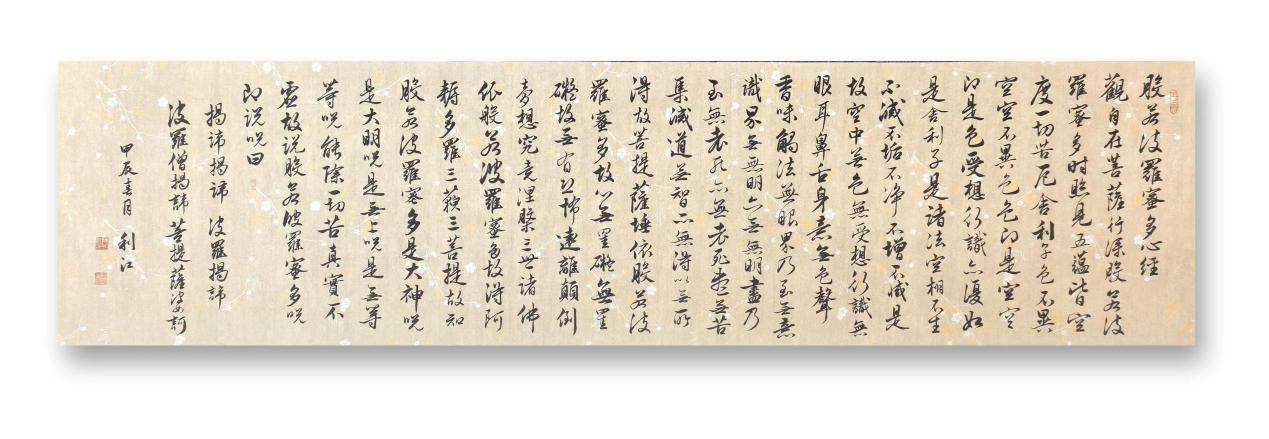 般若波羅蜜多心經
觀自在菩薩行深般若波
羅蜜多時照見五蘊皆空
度一切苦厄舍利子色不異
空空不異色色即是空空
即是色受想行識亦復如
是舍利子是諸法空相不生
不滅不垢不净不增不減是
故空中無色無受想行識無
眼耳鼻舌身意無色聲
香味觸法無眼界乃至無意
識界無無明亦無無明盡乃
至無老死亦無老死盡無苦
集滅道無智亦無得以無所
得故菩提薩埵依般若波
羅蜜多故心無罣礙無罣
礙故無有恐怖遠離顛倒
夢想究竟涅槃三世諸佛
依般若波羅蜜多故得阿
耨多羅三藐三菩提故知
般若波羅蜜多是大神呪
是大明呪是無上呪是無等
等呪能除一切苦真實不
虛故説般若波羅蜜多呪
即説呪曰
揭諦揭諦 波羅揭諦
波羅僧揭諦 菩提薩婆訶
甲辰春月 利江